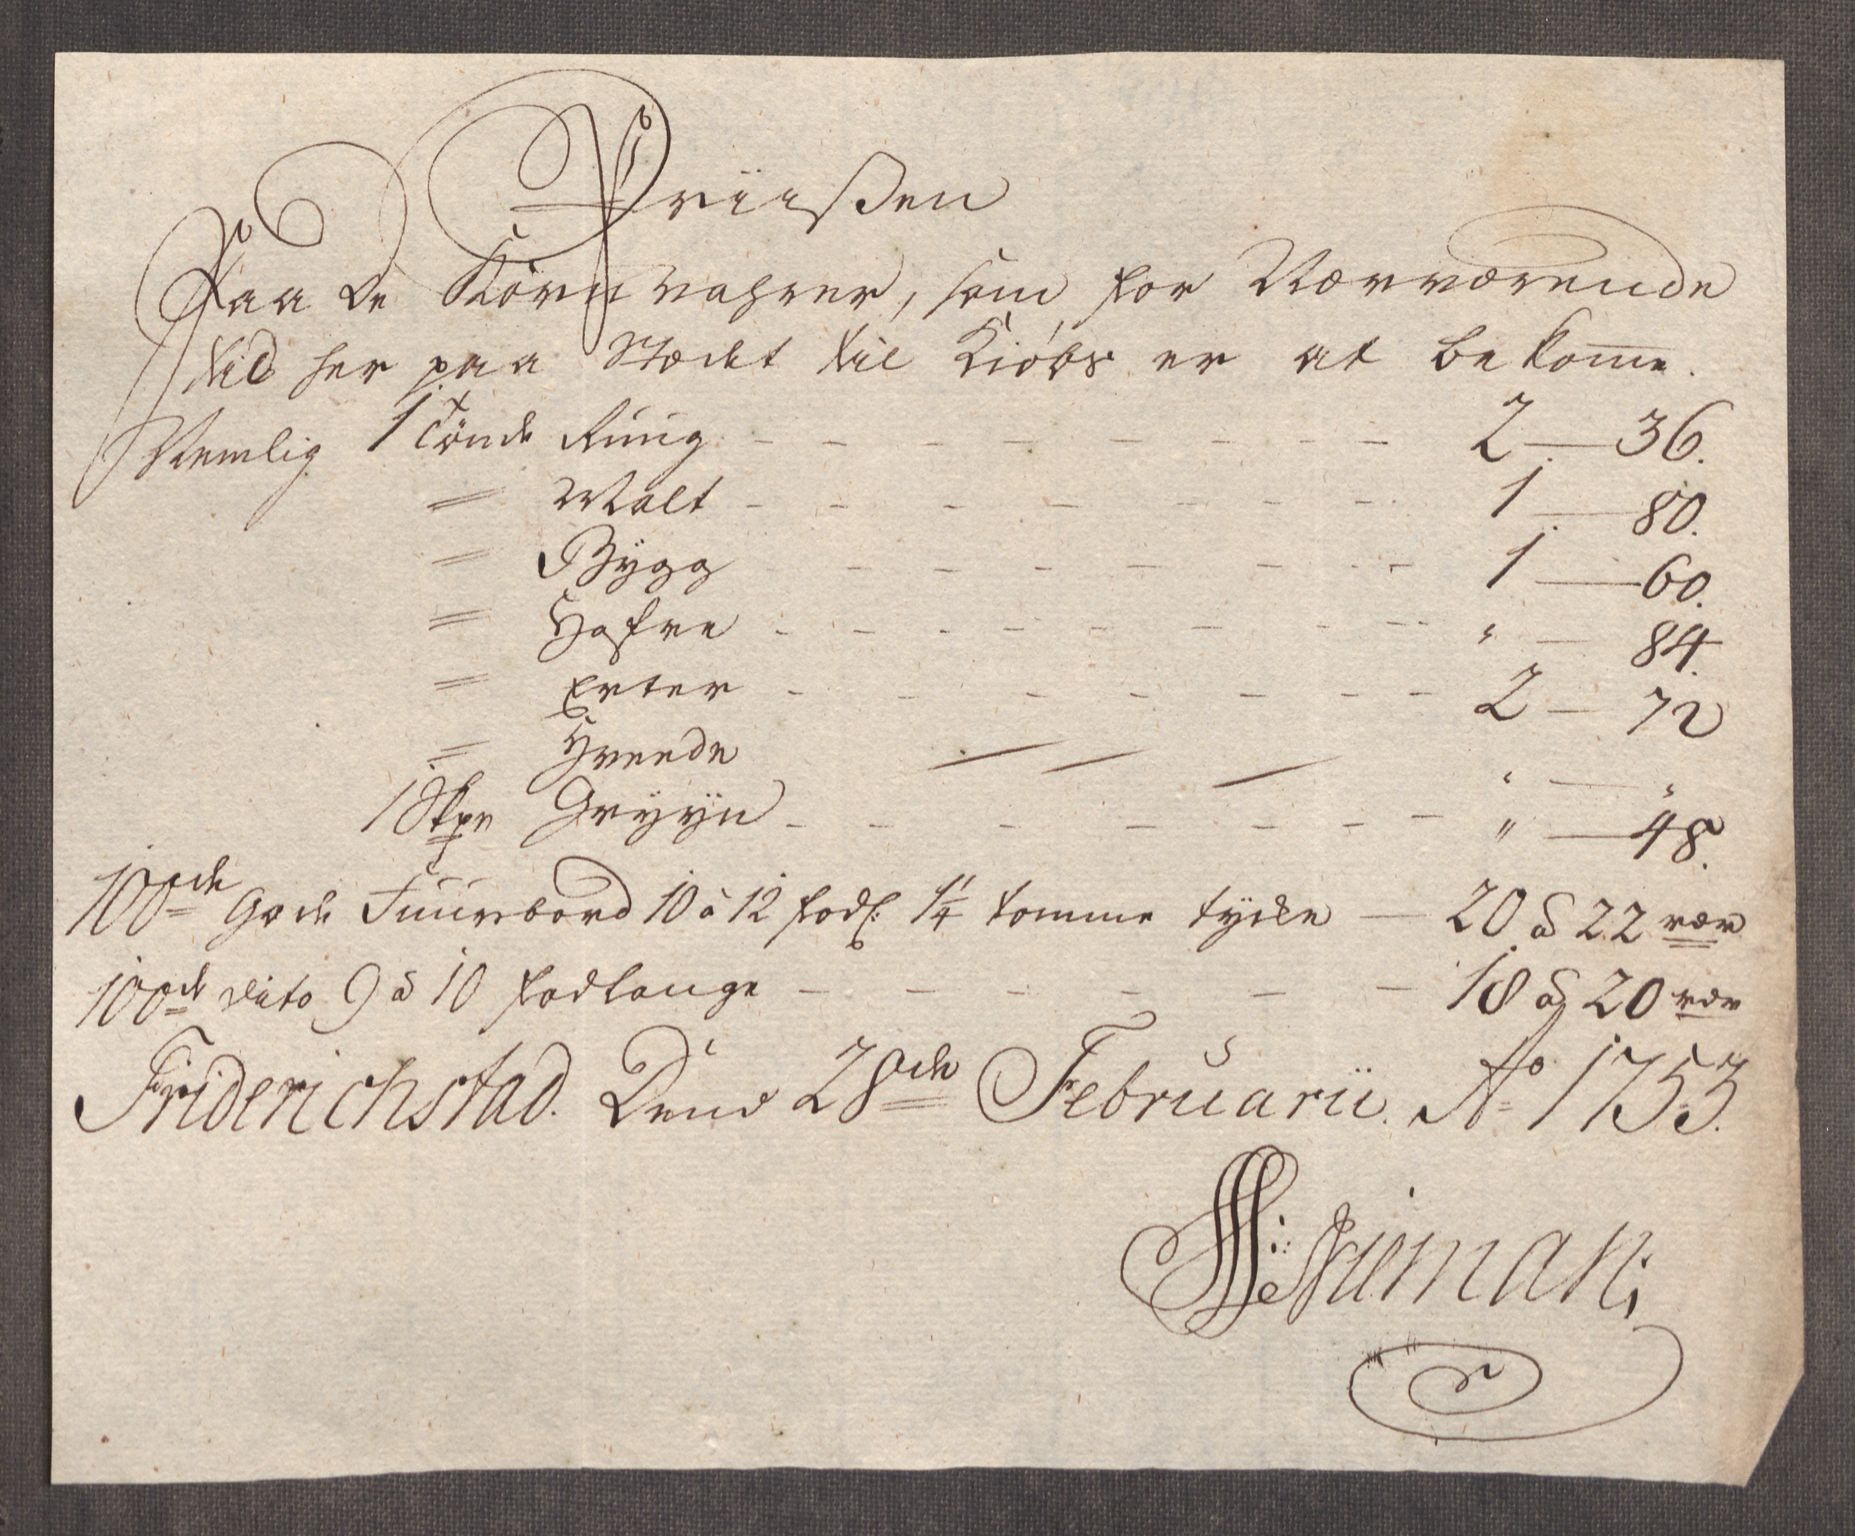 Priisßen
Paa de Korn Vahrer, som for Nærværende
tid her paa Stædet til Kiøbs er at bekome.
Nemlig 1 Tönde Rug - - - - - - - - 2 — 36.
= Malt - - - - - - - - 1 — 80.
= Bygg - - - - - - - 1 — 60.
= Hafre - - - - - - - - " — 84.
= Erter - - - - - - - 2 — 72
= Hveede — — — " — "
1 Skpe Gryyn - - - - - - - " — 48.
100de Gode Fuurbord 10 à 12 fodl: 1 1/4 tomme tycke — 20 à 22 rdr
100de dito 9 à 10 fodlange - - - - - - 18 à 20 rdr
Friderichstad. Dend 28de Februarii. Ao 1753.